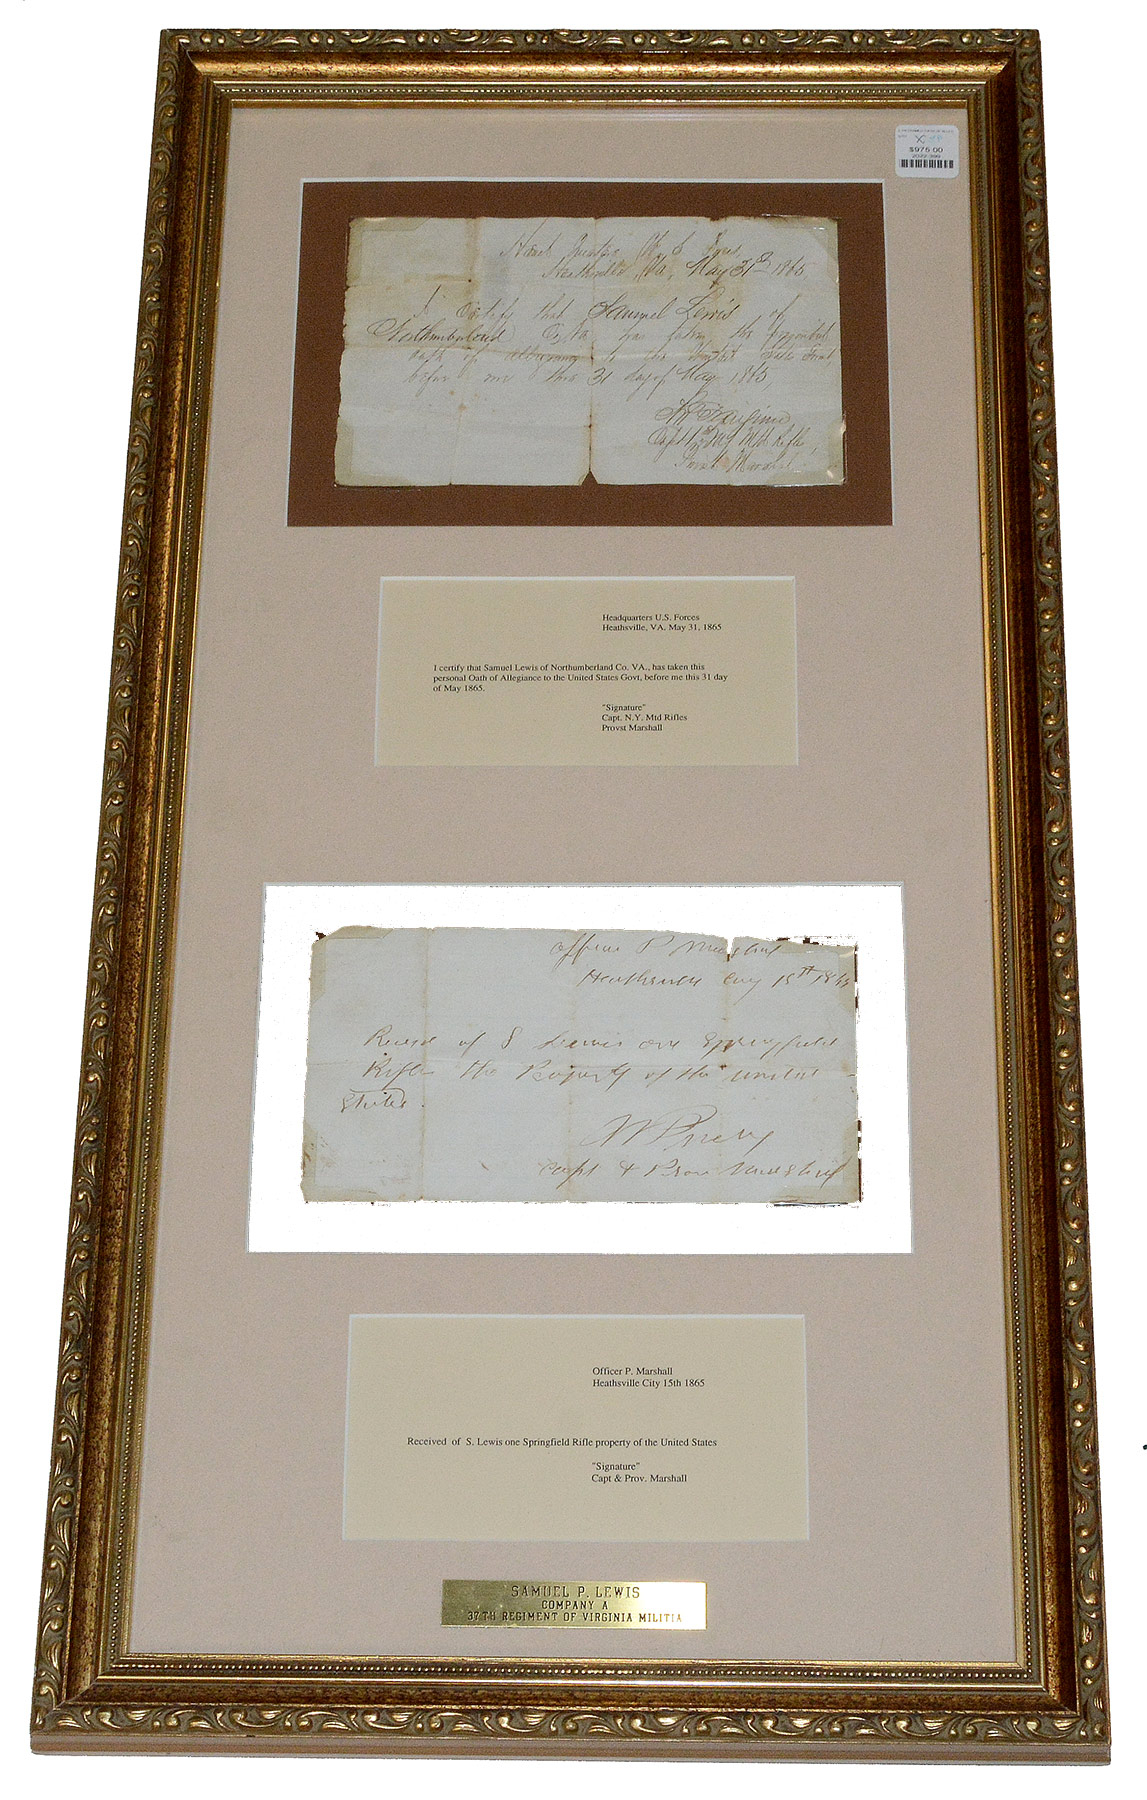 $975.00
Head Quarters U. S. Forces
Heathsville Va, May 31st 1865
I Certify that Samuel Lewis of
Northumberland Co, Va has taken the
oath of allegiance to the United States Govt,
before me this 31 day of May 1865,
Capt 1st N.Y. Mtd Rifles,
Provst Marshal
Headquarters U.S. Forces
Heathsville, VA. May 31, 1865
I certify that Samuel Lewis of Northumberland Co. VA., has taken this
personal Oath of Allegiance to the United States Govt, before me this 31 day
of May 1865.
"Signature"
Capt. N.Y. Mtd Rifles
Provst Marshall
Office P. Marshal
Heathsville 15th 1865
Received of S Lewis one Springfield
Rifle the Property of the United
States.
Capt & Prov Marshal
Officer P. Marshall
Heathsville City 15th 1865
Received of S. Lewis one Springfield Rifle property of the United States
"Signature"
Capt & Prov. Marshall
SAMUEL P. LEWIS
COMPANY A
37TH REGIMENT OF VIRGINIA MILITIA